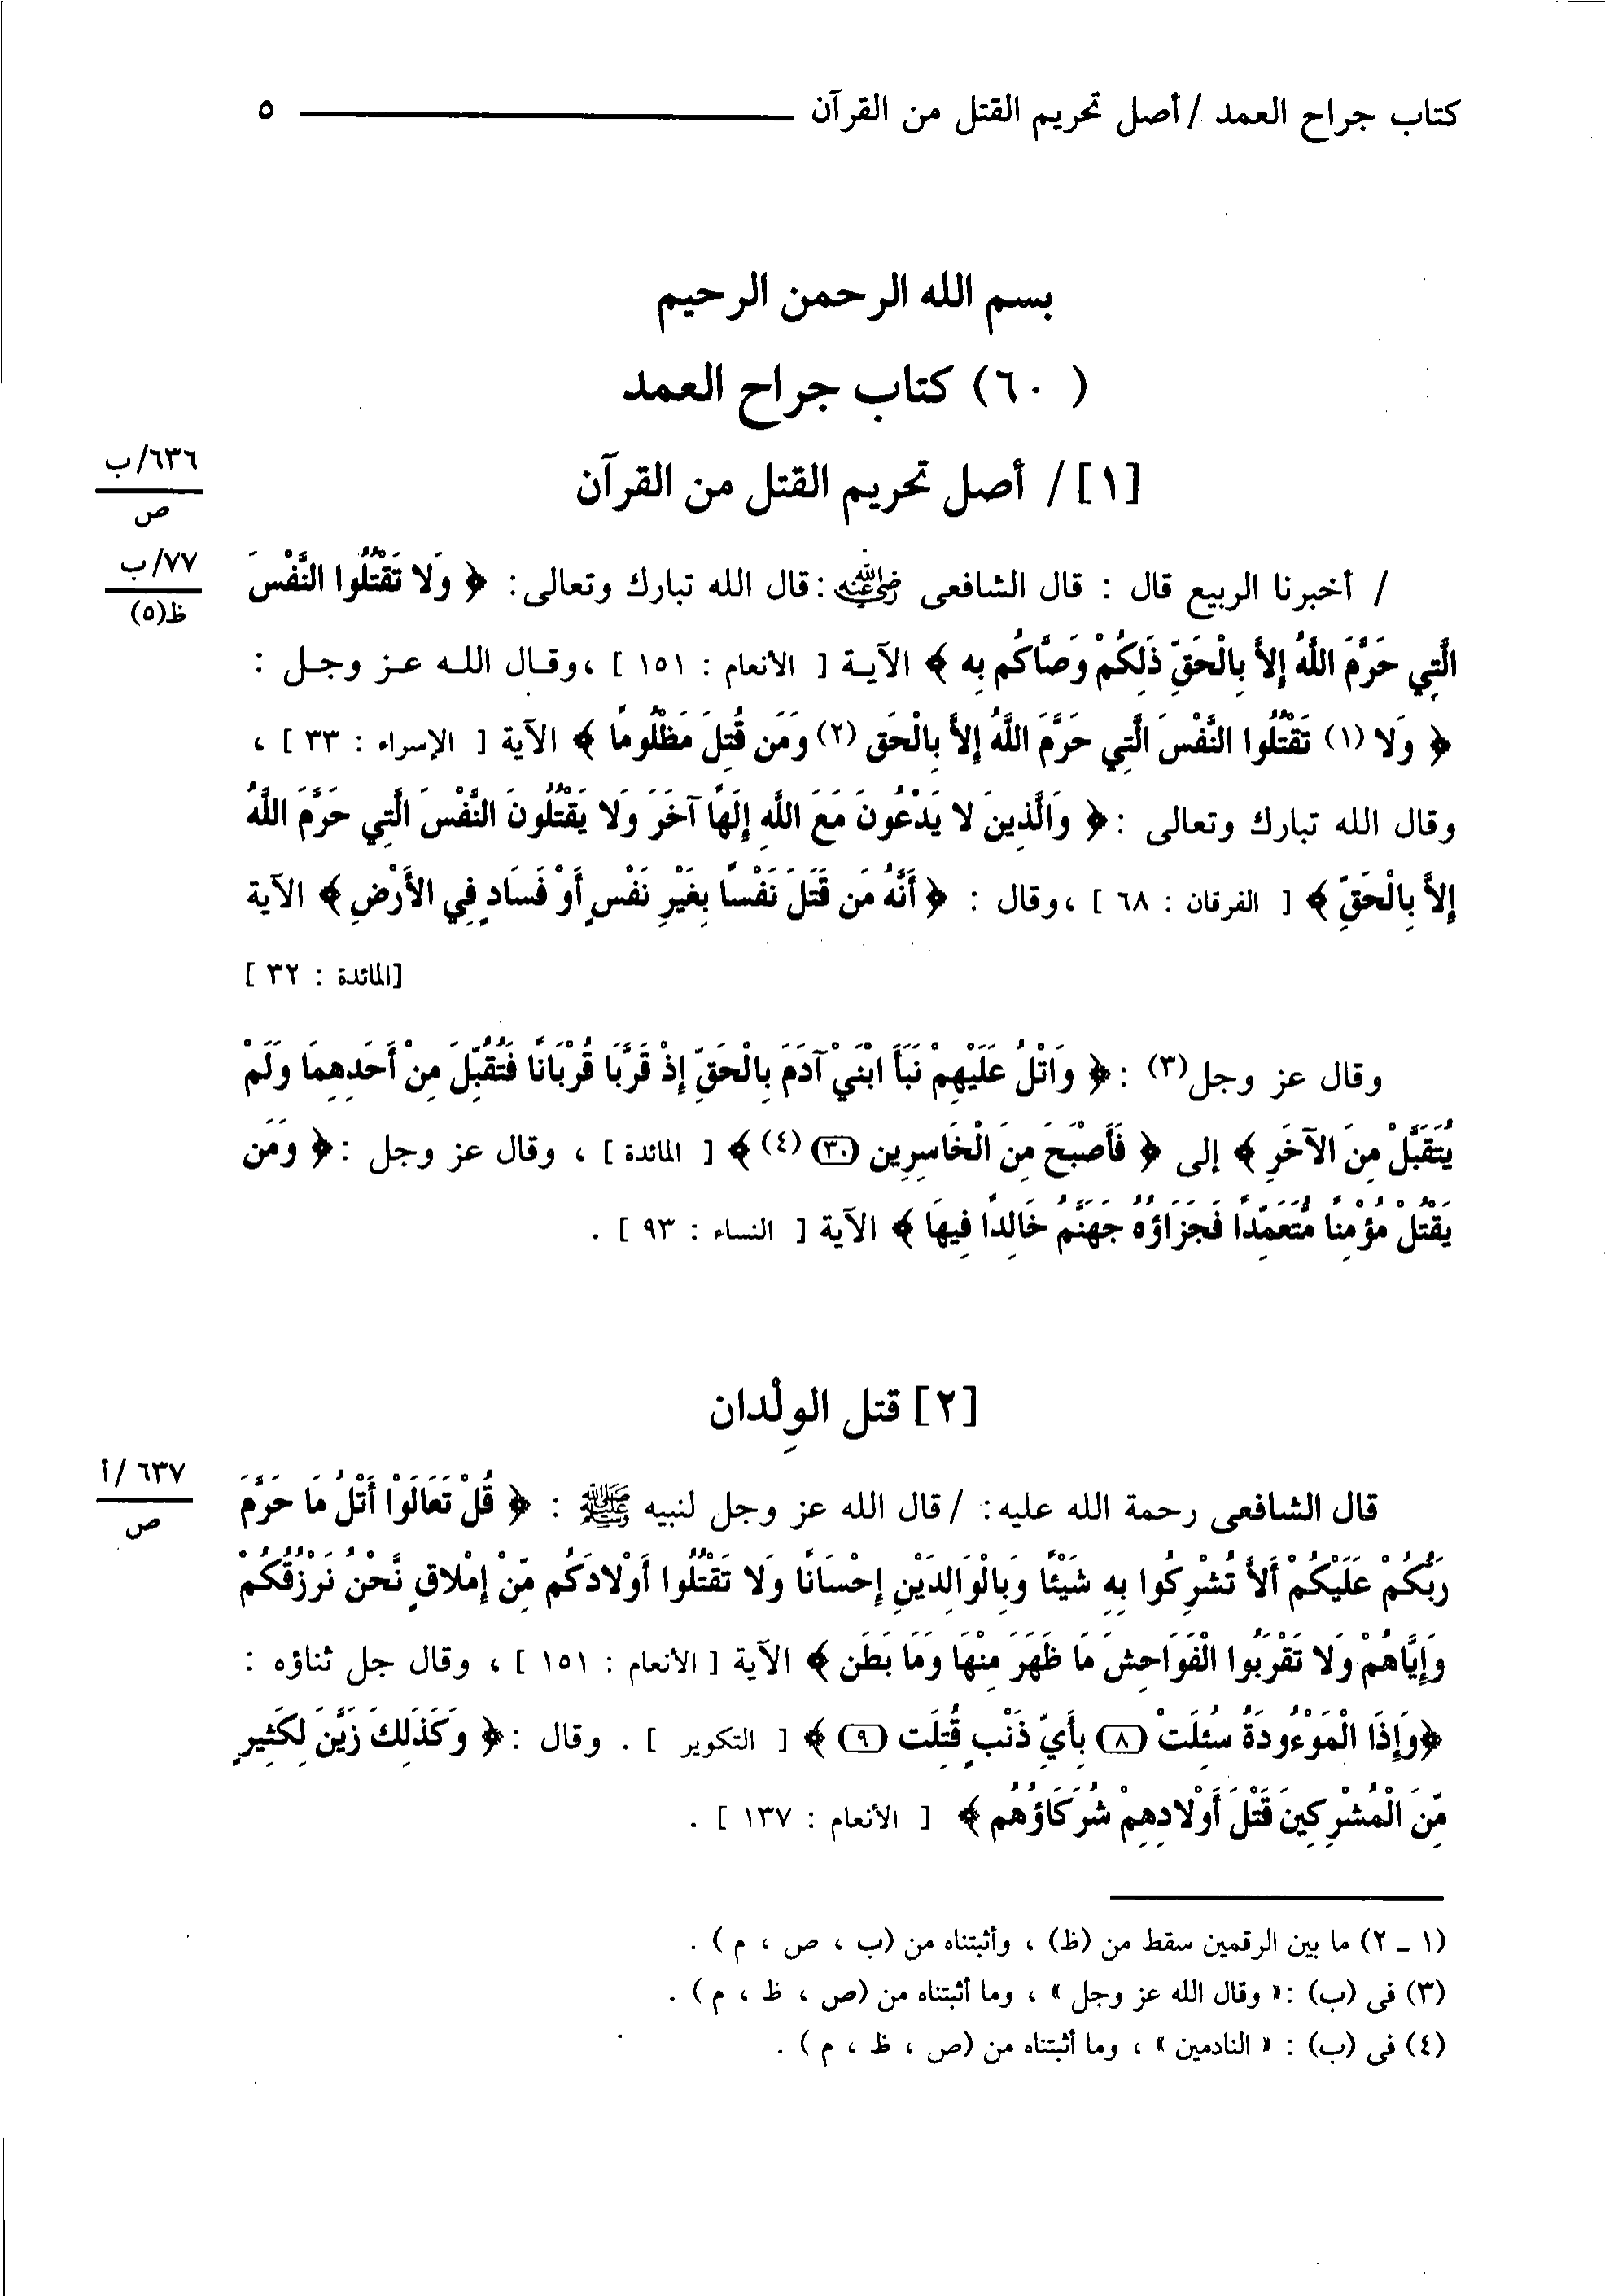 كتاب جراح العمد / أصل تحريم القتل من القرآن ٥
بسم الله الرحمن الرحيم
( ٦٠) كتاب جراح العمد
٦٣٦/ب
ص
[١] / أصل تحريم القتل من القرآن
٧٧/ب
ظ(٥)
/ أخبرنا الربيع قال : قال الشافعى رضي الله عنه :قال الله تبارك وتعالى: ﴿ وَلا تَقْتُلُوا النَّفْسَ
الَّتِي حَرَّمَ اللَّهُ إِلاَّ بِالْحَقِّ ذَلِكُمْ وَصَّاكُم بِه ﴾ الآيـة [ الأنعام : ١٥١ ] ،وقـال اللـه عـز وجـل :
﴿ وَلا (١) تَقْتُلُوا النَّفْسَ الَّتِي حَرَّمَ اللَّهُ إِلاَّ بِالْحَق (٢) وَمَن قُتِلَ مَظْلُومًا ﴾ الآية [ الإسراء : ٣٣ ] ،
وقال الله تبارك وتعالى :﴿ وَالَّذِينَ لا يَدْعُونَ مَعَ اللَّهِ إِلَهًا آخَرَ وَلا يَقْتُلُونَ النَّفْسَ الَّتِي حَرَّمَ اللَّهُ
إِلاَّ بِالْحَقِّ ﴾ [ الفرقان : ٦٨ ] ،وقال : ﴿ أَنَّهُ مَن قَتَلَ نَفْسًا بِغَيْرِ نَفْسٍ أَوْ فَسَادٍ فِي الأَرْضِ ﴾ الآية
[المائدة : ٣٢ ]
وقال عز وجل(٣) :﴿ وَاتْلُ عَلَيْهِمْ نَبَأَ ابْنَيْ آدَمَ بِالْحَقِّ إِذْ قَرَّبَا قُرْبَانًا فَتُقُبِّلَ مِنْ أَحَدِهِمَا وَلَمْ
يُتَقَبَّلْ مِنَ الآخَرِ ﴾ إلى ﴿ فَأَصْبَحَ مِنَ الْخَاسِرِين (٣٠) (٤) ﴾ [ المائدة ] ، وقال عز وجل :﴿ وَمَن
يَقْتُلْ مُؤْمِنًا مُّتَعَمِّدًا فَجَزَاؤُهُ جَهَنَّمُ خَالِدًا فِيهَا ﴾ الآية [ النساء : ٩٣ ] .
[٢] قتل الوِلْدان
٦٣٧ /أ
ص
قال الشافعى رحمة الله عليه: / قال الله عز وجل لنبيه ﷺ : ﴿ قُلْ تَعَالَوْا أَتْلُ مَا حَرَّمَ
رَبُّكُمْ عَلَيْكُمْ أَلاَّ تُشْرِكُوا بِهِ شَيْئًا وَبِالْوَالِدَيْنِ إِحْسَانًا وَلا تَقْتُلُوا أَوْلادَكُم مِّنْ إِمْلاقٍ نَّحْنُ نَرْزُقُكُمْ
وَإِيَّاهُمْ وَلا تَقْرَبُوا الْفَوَاحِشَ مَا ظَهَرَ مِنْهَا وَمَا بَطَن ﴾ الآية [ الأنعام : ١٥١ ] ، وقال جل ثناؤه :
﴿وَإِذَا الْمَوْءُودَةُ سُئِلَتْ (٨) بِأَيِّ ذَنْبٍ قُتِلَت (٩) ﴾ [ التكوير ] . وقال :﴿ وَكَذَلِكَ زَيَّنَ لِكَثِيرٍ
مِّنَ الْمُشْرِكِينَ قَتْلَ أَوْلادِهِمْ شُرَكَاؤُهُم ﴾ [ الأنعام : ١٣٧ ] .
(١ ـ ٢) ما بين الرقمين سقط من (ظ) ، وأثبتناه من (ب ، ص ، م ) .
(٣) فى (ب) :« وقال الله عز وجل » ، وما أثبتناه من (ص ، ظ ، م ) .
(٤) فى (ب) : « النادمين » ، وما أثبتناه من (ص ، ظ ، م ) .